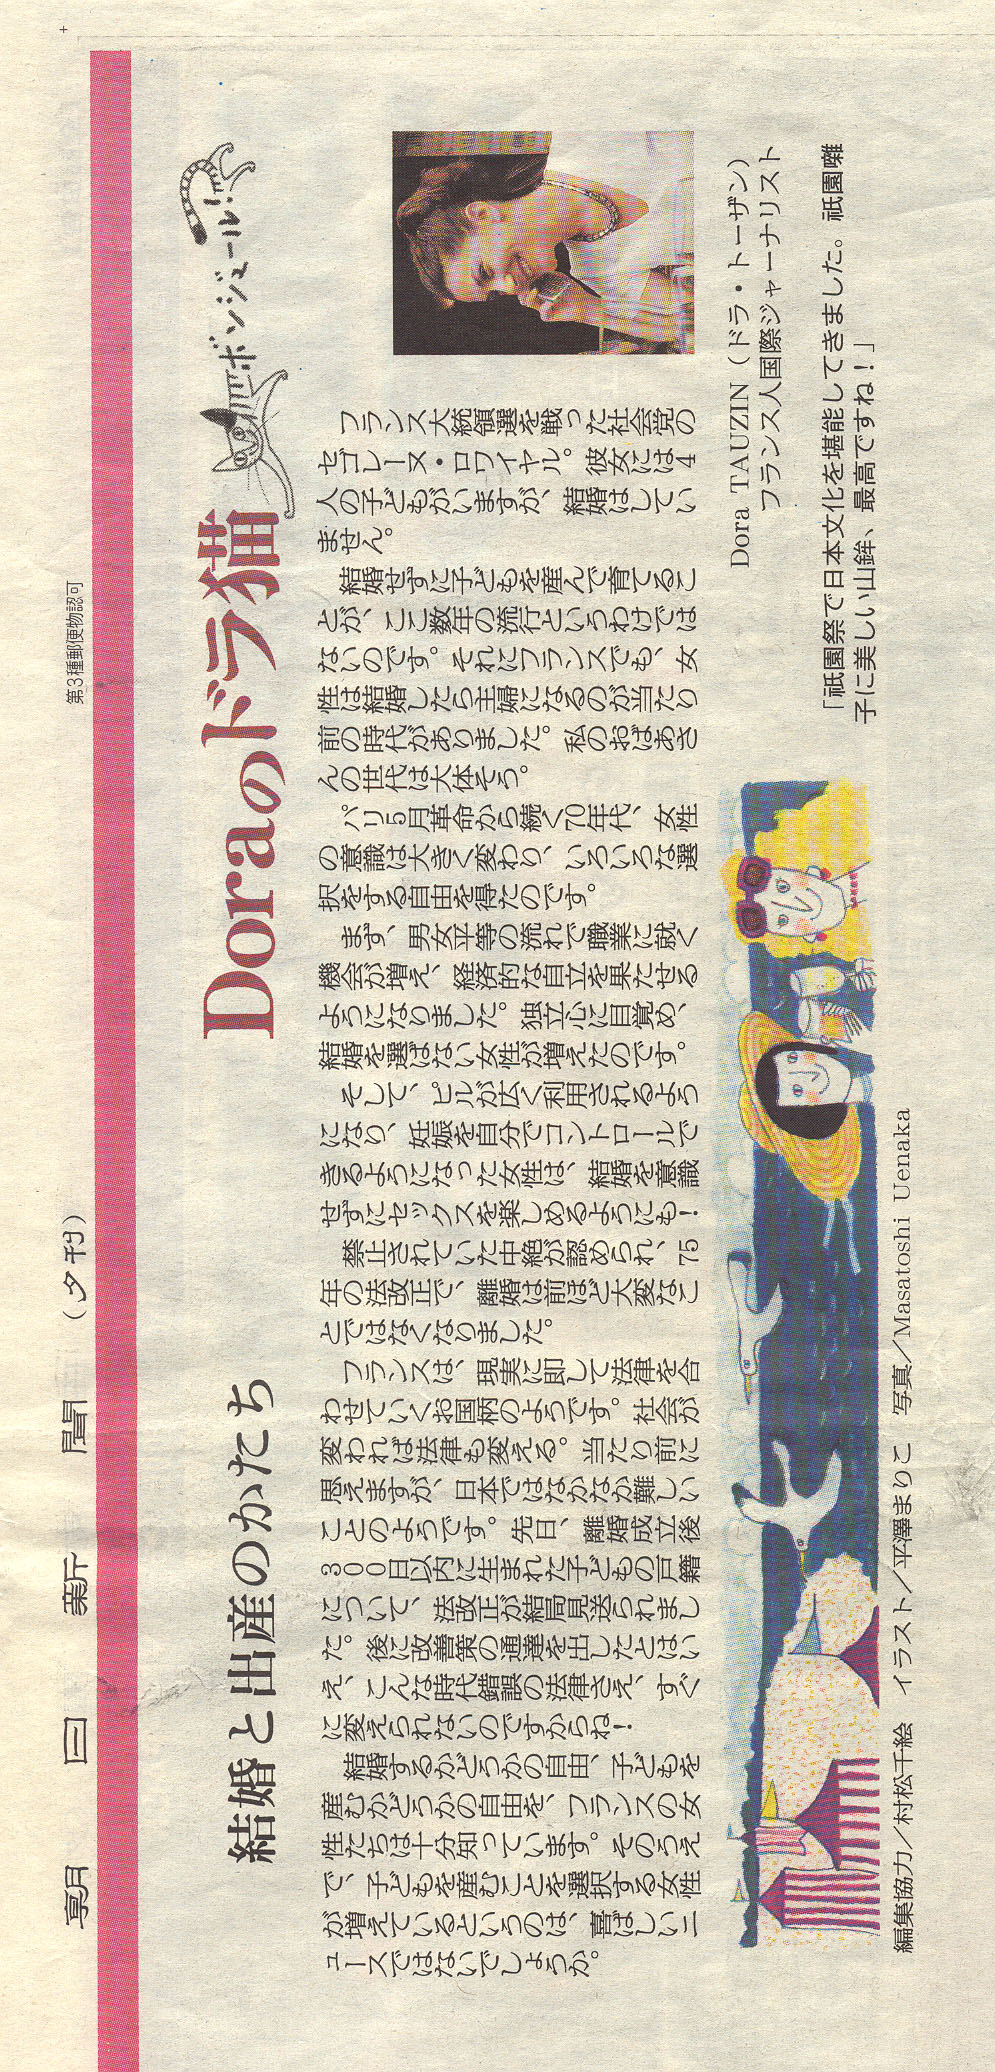 朝日新聞
(夕刊)
第3種郵便物認可
Doraのドラ猫
ボンジュール!
結婚と出産のかたち
フランス大統領選を戦った社会党の
セゴレーヌ・ロワイヤル。彼女には4
人の子どもがいますが、結婚はしてい
ません。
結婚せずに子どもを産んで育てるこ
とが、ここ数年の流行というわけでは
ないのです。それにフランスでも、女
性は結婚したら主婦になるのが当たり
前の時代がありました。私のおばあさ
んの世代は大体そう。
パリ5月革命から続く70年代、女性
の意識は大きく変わり、いろいろな選
択をする自由を得たのです。
まず、男女平等の流れで職業に就く
機会が増え、経済的な自立を果たせる
ようになりました。独立心に目覚め、
結婚を選ばない女性が増えたのです。
そして、ピルが広く利用されるよう
になり、妊娠を自分でコントロールで
きるようになった女性は、結婚を意識
せずにセックスを楽しめるようにも!
禁止されていた中絶が認められ、75
年の法改正で、離婚は前ほど大変なこ
とではなくなりました。
フランスは、現実に即して法律を合
わせていくお国柄のようです。社会が
変われば法律も変える。当たり前に
思えますが、日本ではなかなか難しい
ことのようです。先日、離婚成立後
300日以内に生まれた子どもの戸籍
について、法改正が結局見送られまし
た。後に改善策の通達を出したとはい
え、こんな時代錯誤の法律さえ、すぐ
に変えられないのですからね!
結婚するかどうかの自由、子どもを
産むかどうかの自由を、フランスの女
性たちは十分知っています。そのうえ
で、子どもを産むことを選択する女性
が増えているというのは、喜ばしいニ
ュースではないでしょうか。
Dora TAUZIN(ドラ・トーザン)
フランス人国際ジャーナリスト
「祇園祭で日本文化を堪能してきました。祇園囃
子に美しい山鉾、最高ですね!」
編集協力/村松千絵 イラスト/平澤まりこ 写真/Masatoshi Uenaka